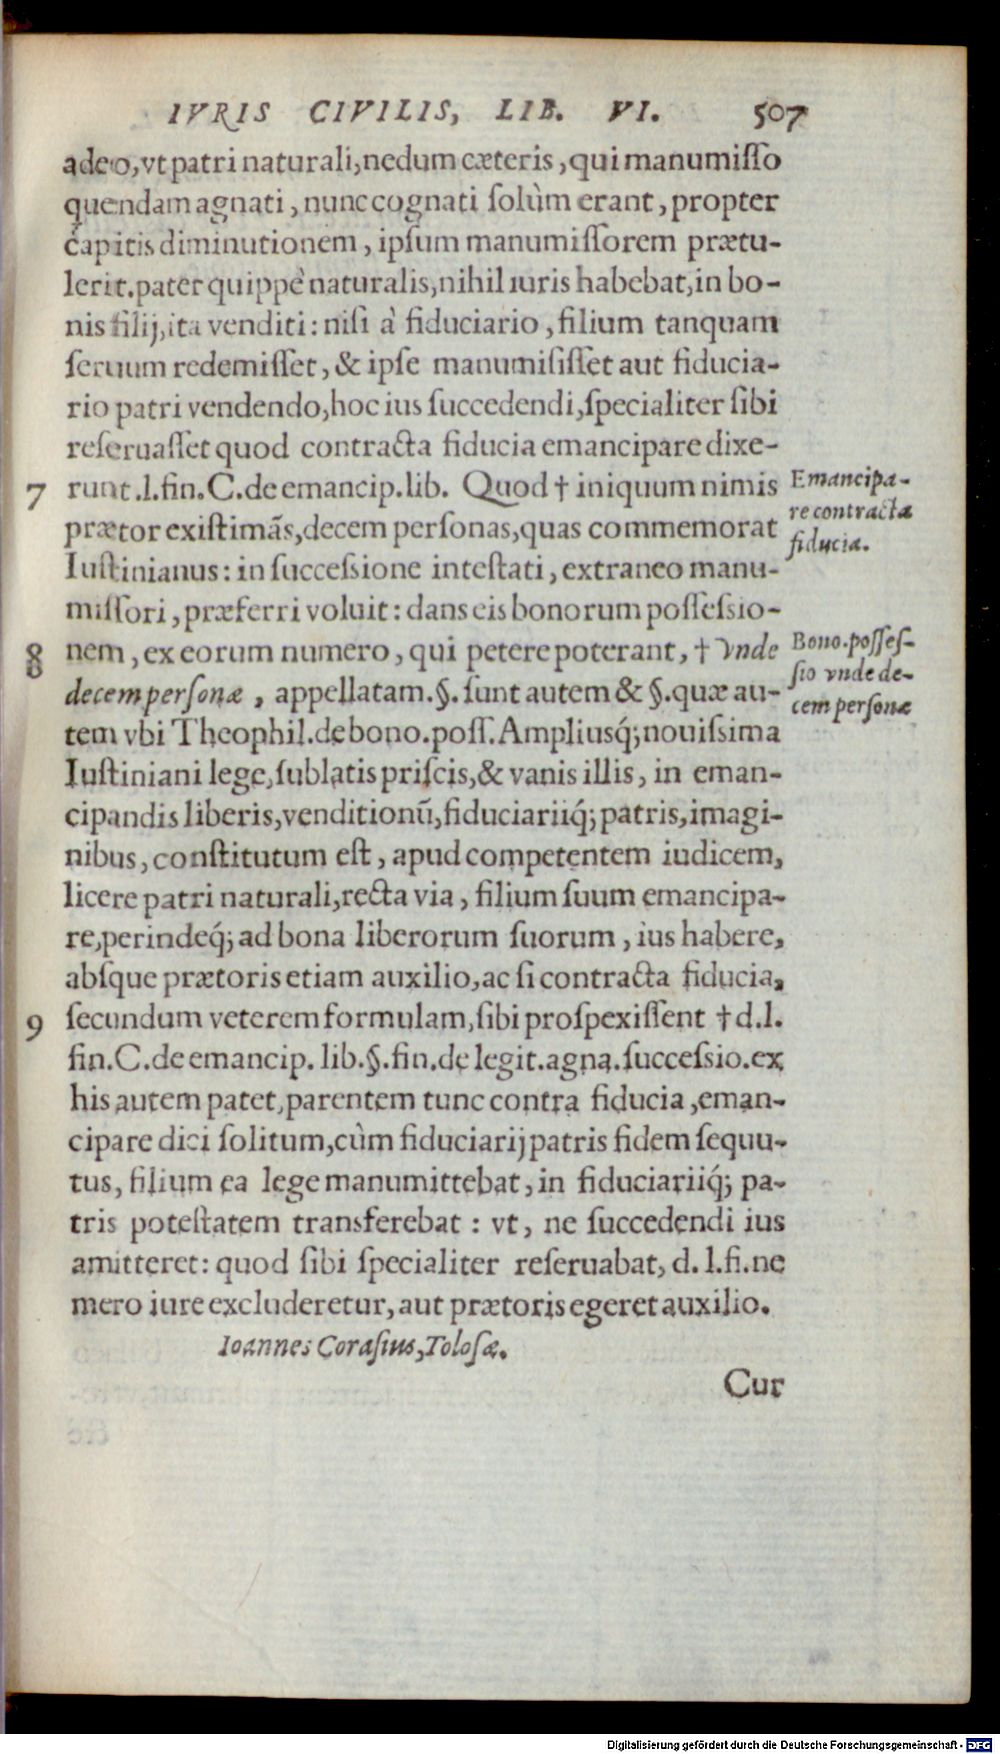 IVRIS CIVILIS, LIB. VI. 507
adeo, vt patri naturali, nedum cæteris, qui manumisso
quendam agnati, nunc cognati solùm erant, propter
capitis diminutionem, ipsum manumissorem prætu-
lerit. pater quippè naturalis, nihil iuris habebat, in bo-
nis filij, ita venditi: nisi à fiduciario, filium tanquam
seruum redemisset, & ipse manumisisset aut fiducia-
rio patri vendendo, hoc ius succedendi, specialiter sibi
reseruasset quod contracta fiducia emancipare dixe-
7 runt. l. fin. C. de emancip. lib. Quod † iniquum nimis
Emancipa-
re contracta
fiducia.
prætor existimãs, decem personas, quas commemorat
Iustinianus: in successione intestati, extraneo manu-
missori, præferri voluit: dans eis bonorum possessio-
8 nem, ex eorum numero, qui petere poterant, † Vnde
Bono. posses-
sio vnde de-
cem personæ
decem personæ, appellatam. §. sunt autem & §. quæ au-
tem vbi Theophil. de bono. poss. Ampliusq́; nouissima
Iustiniani lege, sublatis priscis, & vanis illis, in eman-
cipandis liberis, venditionũ, fiduciariiq́; patris, imagi-
nibus, constitutum est, apud competentem iudicem,
licere patri naturali, recta via, filium suum emancipa-
re, perindeq́; ad bona liberorum suorum, ius habere,
absque prætoris etiam auxilio, ac si contracta fiducia,
9 secundum veterem formulam, sibi prospexissent † d. l.
fin. C. de emancip. lib. §. fin. de legit. agna. successio. ex
his autem patet, parentem tunc contra fiducia, eman-
cipare dici solitum, cùm fiduciarij patris fidem sequu-
tus, filium ea lege manumittebat, in fiduciariiq́; pa-
tris potestatem transferebat: vt, ne succedendi ius
amitteret: quod sibi specialiter reseruabat, d. l. fi. ne
mero iure excluderetur, aut prætoris egeret auxilio.
Ioannes Corasius, Tolosæ.
Cur
Digitalisierung gefördert durch die Deutsche Forschungsgemeinschaft - DFG